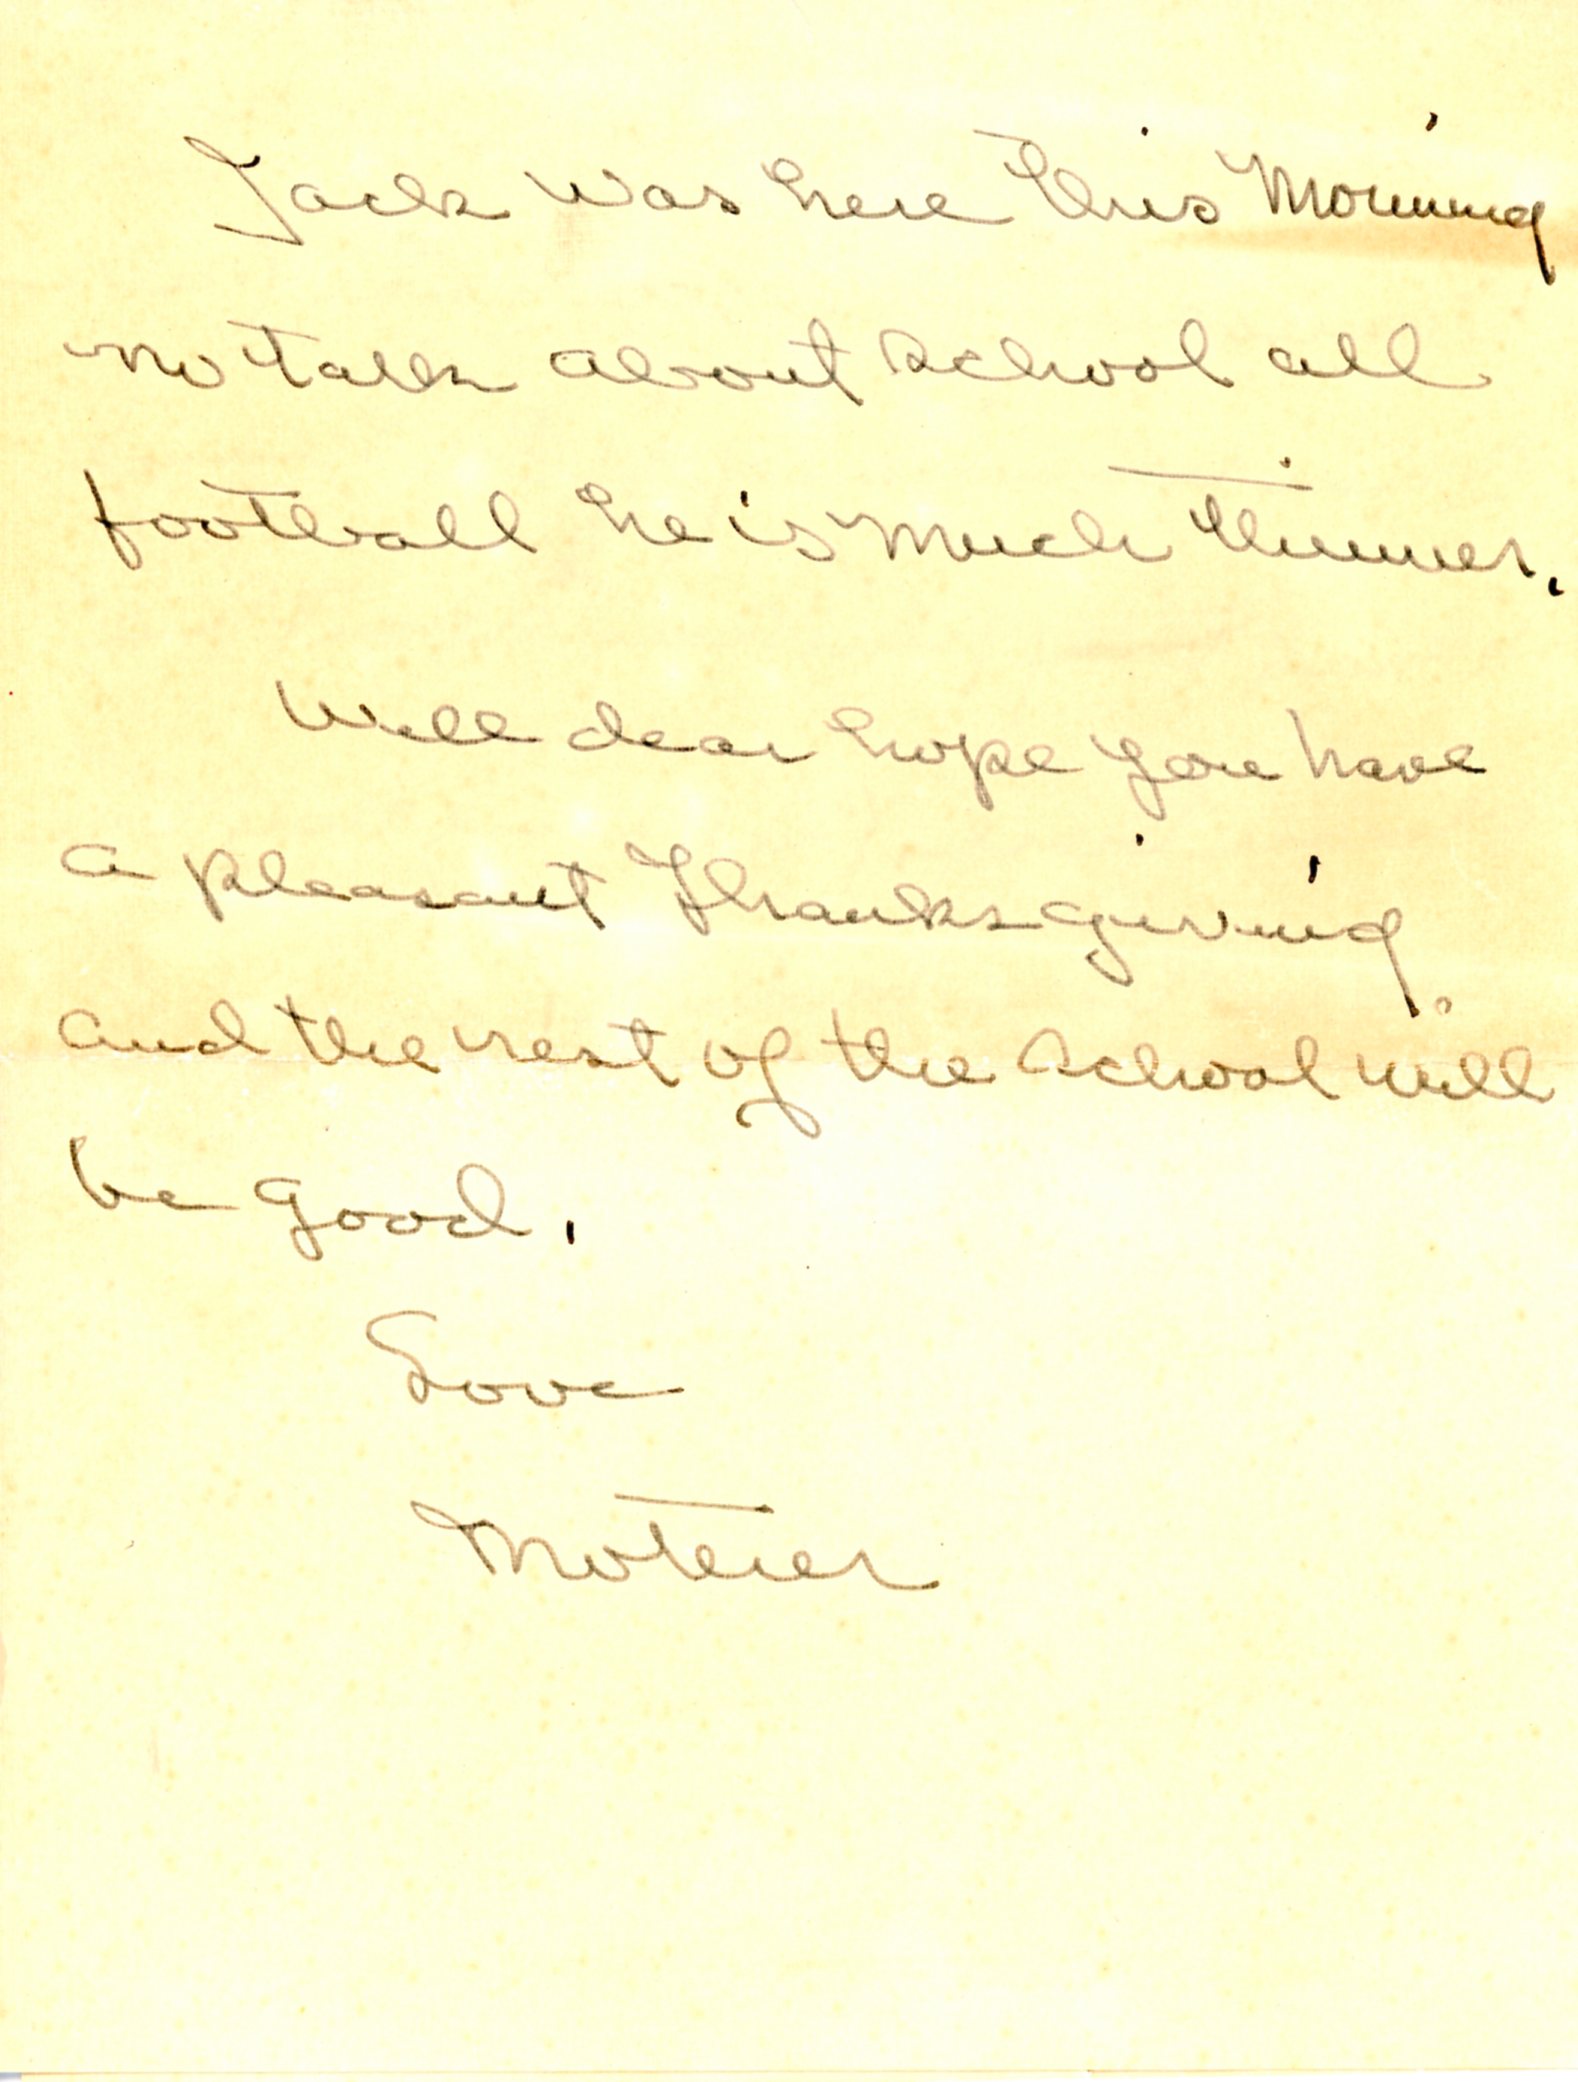 Jack was here this Morning
no talk about school all
football he is much thinner.
Well dear hope you have
a pleasant Thanksgiving
and the rest of the school will
be good.
Love
Mother